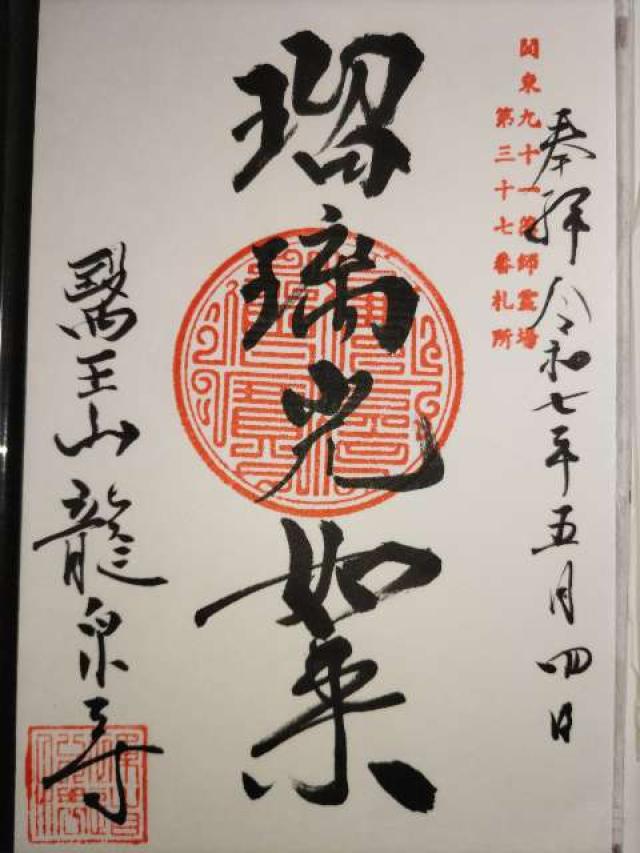 奉拝 令和七年五月四日
関東九十一薬師霊場
第三十七番札所
瑠璃光如来
醫王山 龍泉寺